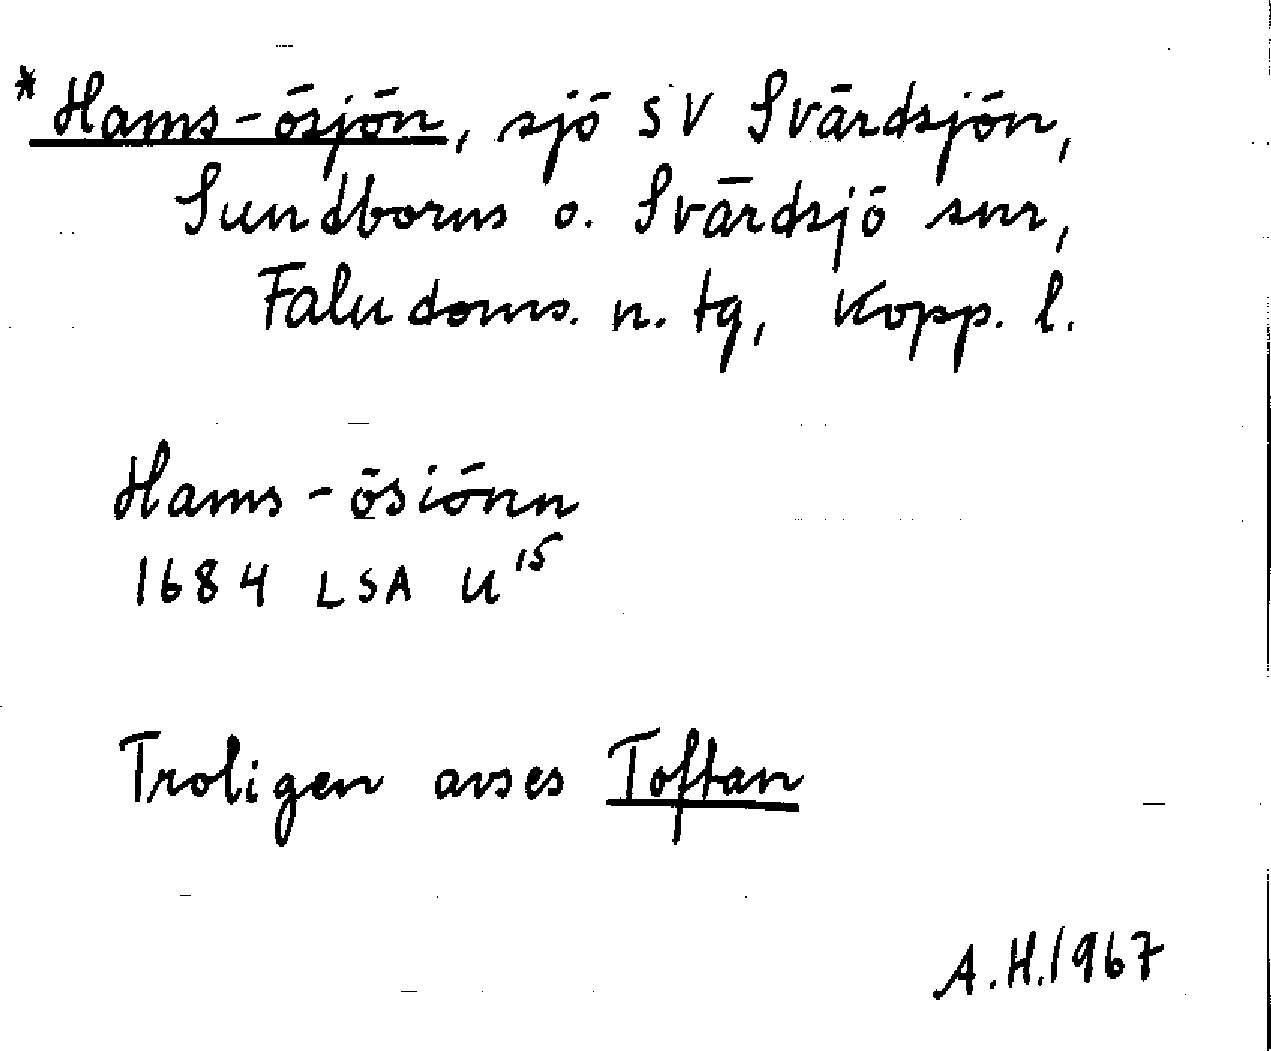 * Hams-ösjön, sjö SV Svärdsjön,
Sundborns o. Svärdsjö snr,
Falu doms. n. tg, Kopp. l.
Hams-ösiönn
1684 LSA U 15
Troligen avses Toftan
A.H. 1967